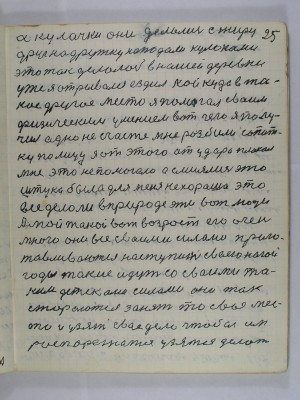 а кулачки они делались с жиру 25
друг на дружку нападали кулаками
это так делалось в нашей деревни
уже я отрывали ездил кой куда в та-
кое другое место я помогал своим
физическим умением вот чего я полу-
чил одно не счастье мне разбили
ку по лицу я от этого от удара плакал
мне это не помогало а смиялись это
штука была для меня не хорошая это
все делали в природе эти вот люди
а мой такой вот возраст его очен
много они все своими силами приго-
тавливаются наступит своего нагой
годы такие идут со своими та-
кими детскими силами они так
стараются занят то свое мес-
то и взят свае дело чтобы им
распоряжатся взятся делат